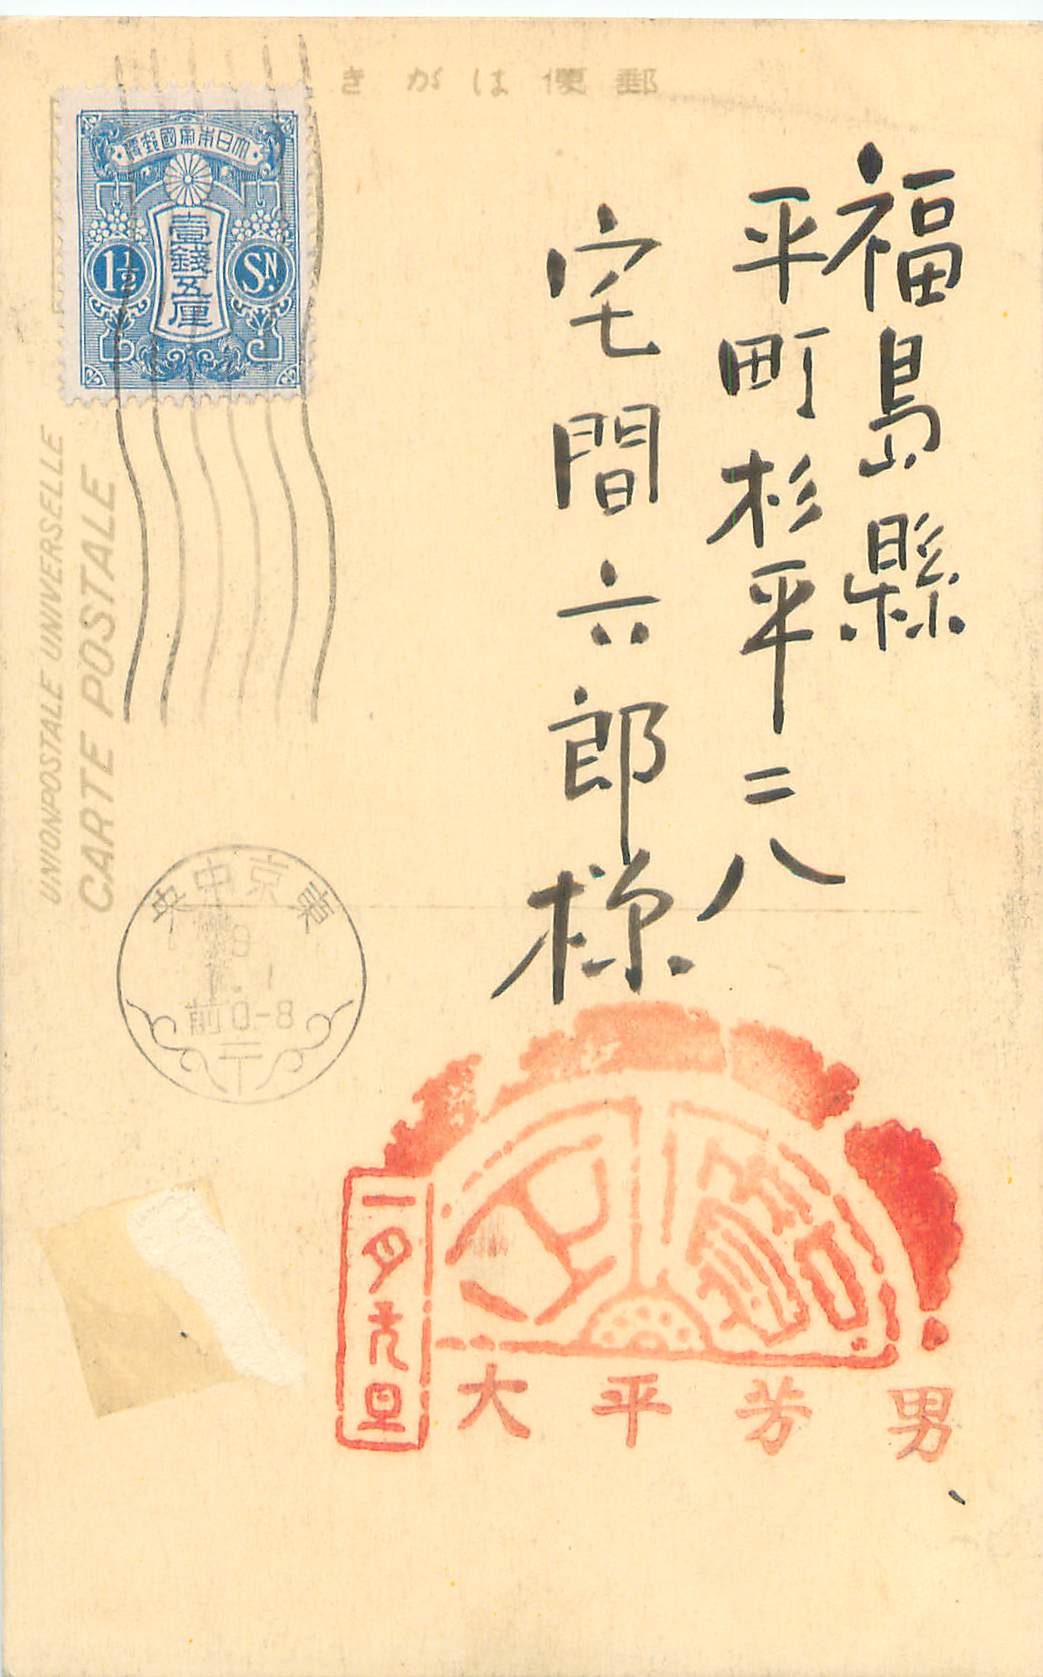 郵便はがき
大日本帝國郵便
壹錢五厘
1½ SN.
福島縣
平町杉平二八
宅間六郎様
UNION POSTALE UNIVERSELLE
CARTE POSTALE
東京中央
9.1.1
前0-8
一月元旦
大平芳男